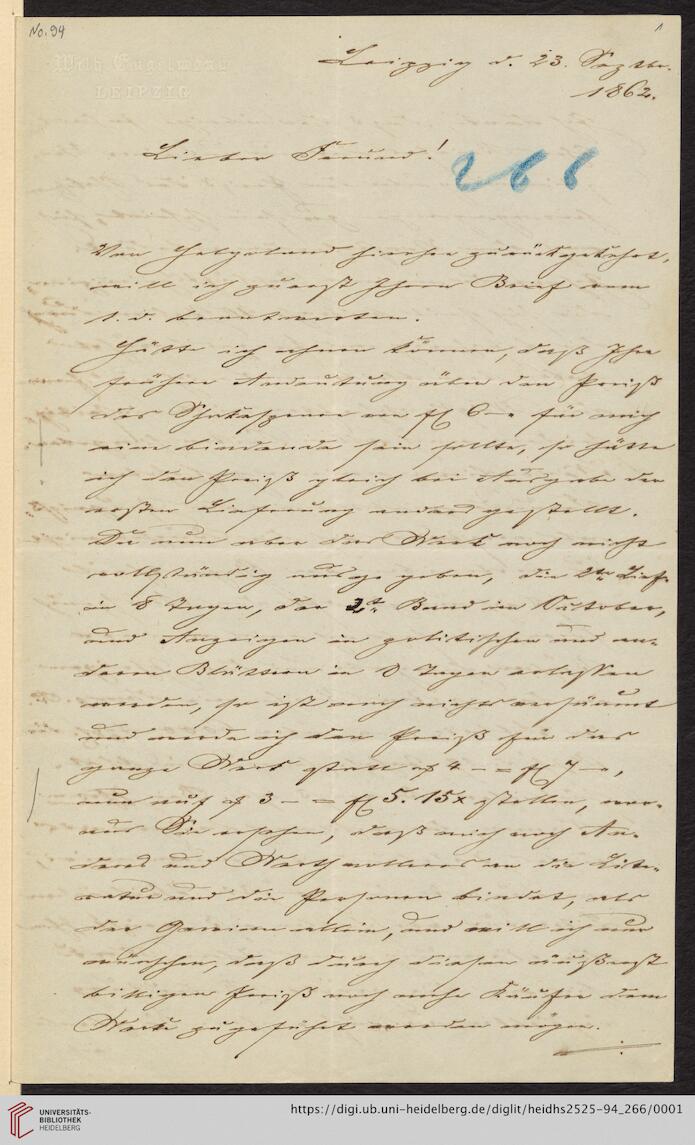 No. 94
1
Wilh. Engelmann
LEIPZIG
Leipzig d. 23. Septbr.
1862.
Lieber Freund!
266
Von Helgoland hierher zurückgekehrt,
will ich zuerst Ihren Brief vom
1. d. beantworten.
Hätte ich ahnen können, daß Ihre
frühere Andeutung über den Preiß
des Shakespeare von fl 6 – für mich
eine bindende sein sollte, so hätte
ich den Preiß gleich bei Ausgabe der
ersten Lieferung anders gestellt.
Da nun aber das Werk noch nicht
vollständig ausgegeben, die 2te Lief.
in 8 Tagen, der 2t. Band im October,
und Anzeigen in politischen und an-
deren Blättern in 8 Tagen erlassen
werden, so ist noch nichts versäumt
und werde ich den Preiß für das
ganze Werk statt 4 – = fl 7 –,
nun auf 3 – = fl 5. 15x stellen, wor-
aus Sie ersehen, daß mich noch An-
deres und Werthvolleres an die Lite-
ratur und die Personen bindet, als
der Gewinn allein, und will ich nur
wünschen, daß durch diesen äußerst
billigen Preiß noch mehr Käufer dem
Werke zugeführt werden mögen.
UNIVERSITÄTS-
BIBLIOTHEK
HEIDELBERG
https://digi.ub.uni-heidelberg.de/diglit/heidhs2525-94_266/0001